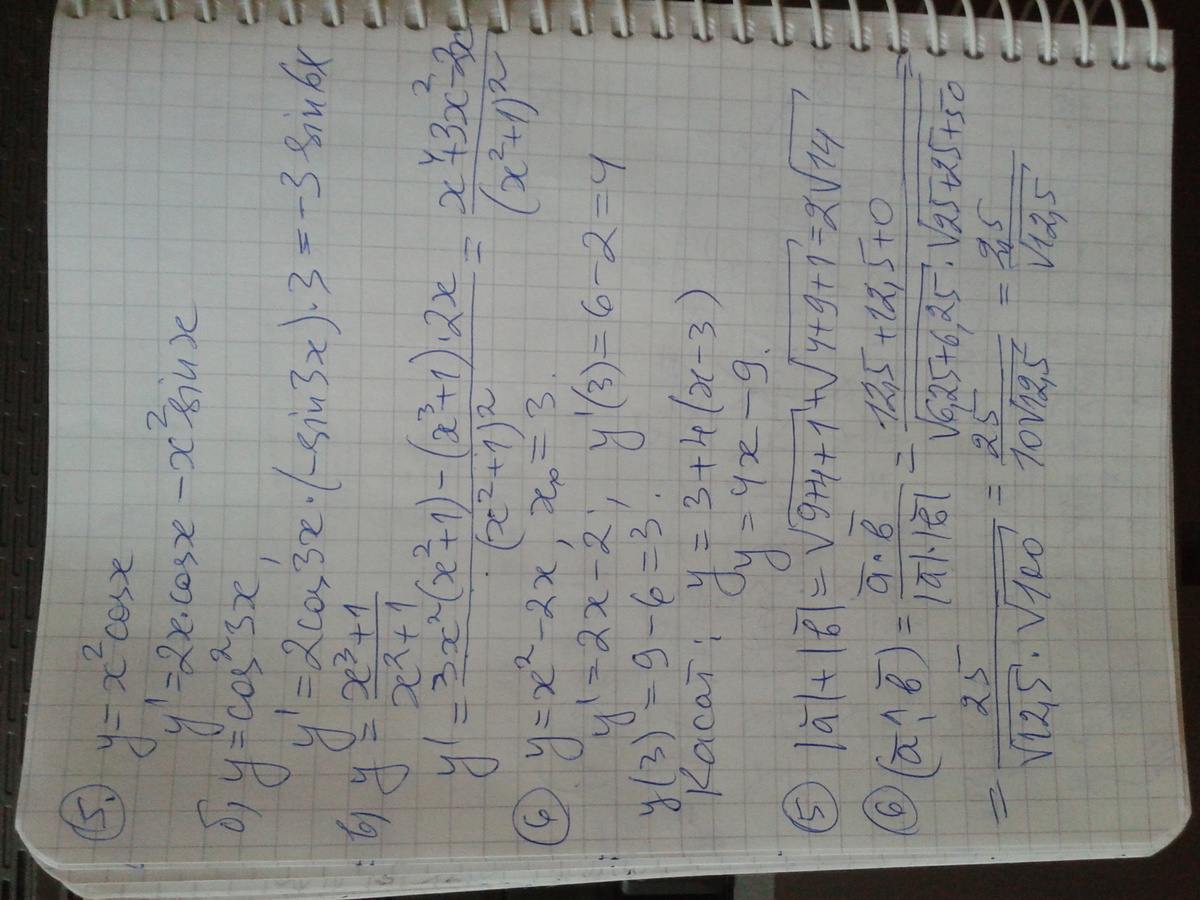 5. y = x² cos x
y' = 2x·cos x − x² sin x
б) y = cos² 3x
y' = 2cos 3x·(−sin 3x)·3 = −3 sin 6x
в) y = (x³+1)/(x²+1)
y' = (3x²(x²+1) − (x³+1)·2x)/(x²+1)² = (x⁴+3x²−2x)/(x²+1)²
6 y = x² − 2x, x₀ = 3
y' = 2x − 2; y'(3) = 6 − 2 = 4
y(3) = 9 − 6 = 3.
Касат: y = 3 + 4(x − 3)
y = 4x − 9.
5 |a̅| + |b̅| = √(9+4+1) + √(4+9+1) = 2√14
6 (a̅^b̅) = (a̅·b̅)/(|a̅|·|b̅|) = (12,5+12,5+0)/(√(6,25+6,25)·√(25+25+50)) =
= 25/(√12,5·√100) = 25/(10√12,5) = 2,5/√12,5